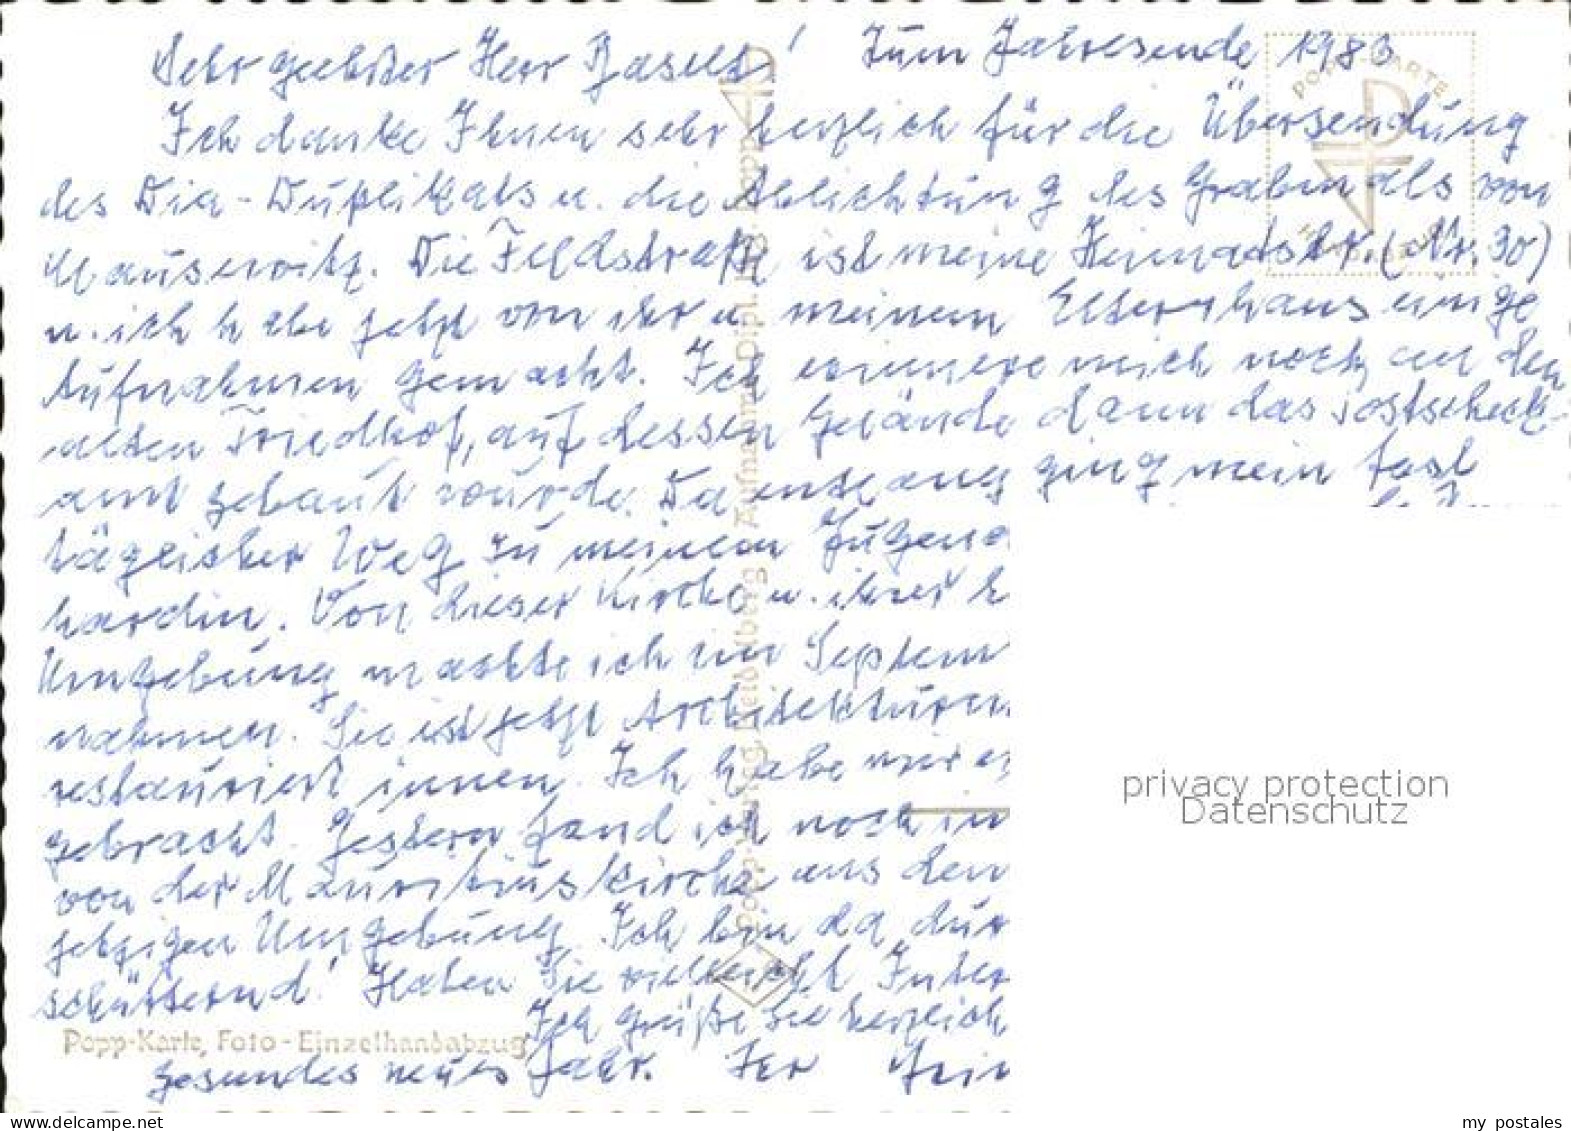 Sehr geehrter Herr Zum Jahresende 1983
Ich danke Ihnen sehr herzlich für die Übersendung
des Dia-Duplikats u. die Ablichtung des Grabmals von
Die Feldstraße ist meine Heimatstr. (Nr. 30)
u. ich habe jetzt von ihr u. meinem Elternhaus einige
Aufnahmen gemacht. Ich erinnere mich noch an den
alten Friedhof, auf dessen Gelände dann das Postscheck-
amt gebaut wurde. Da entlang ging mein fast
täglicher Weg zu meinem Jugend
hardin. Von dieser Kirche u. ihrer
Umgebung machte ich im Septem
nahmen. Sie ist jetzt Architektur
restauriert innen. Ich habe mir
gebracht. Gestern fand ich noch in
von der Mauritiuskirche aus den
jetzigen Umgebung. Ich bin da
schütternd! Haben Sie vielleicht Inter
Ich grüße Sie herzlich
gesundes neues Jahr. Ihr
POPP-KARTE
Popp-Verlag Heidelberg Aufnahme Dipl. Ing. Popp
Popp-Karte, Foto-Einzelhandabzug
privacy protection
Datenschutz
my postales